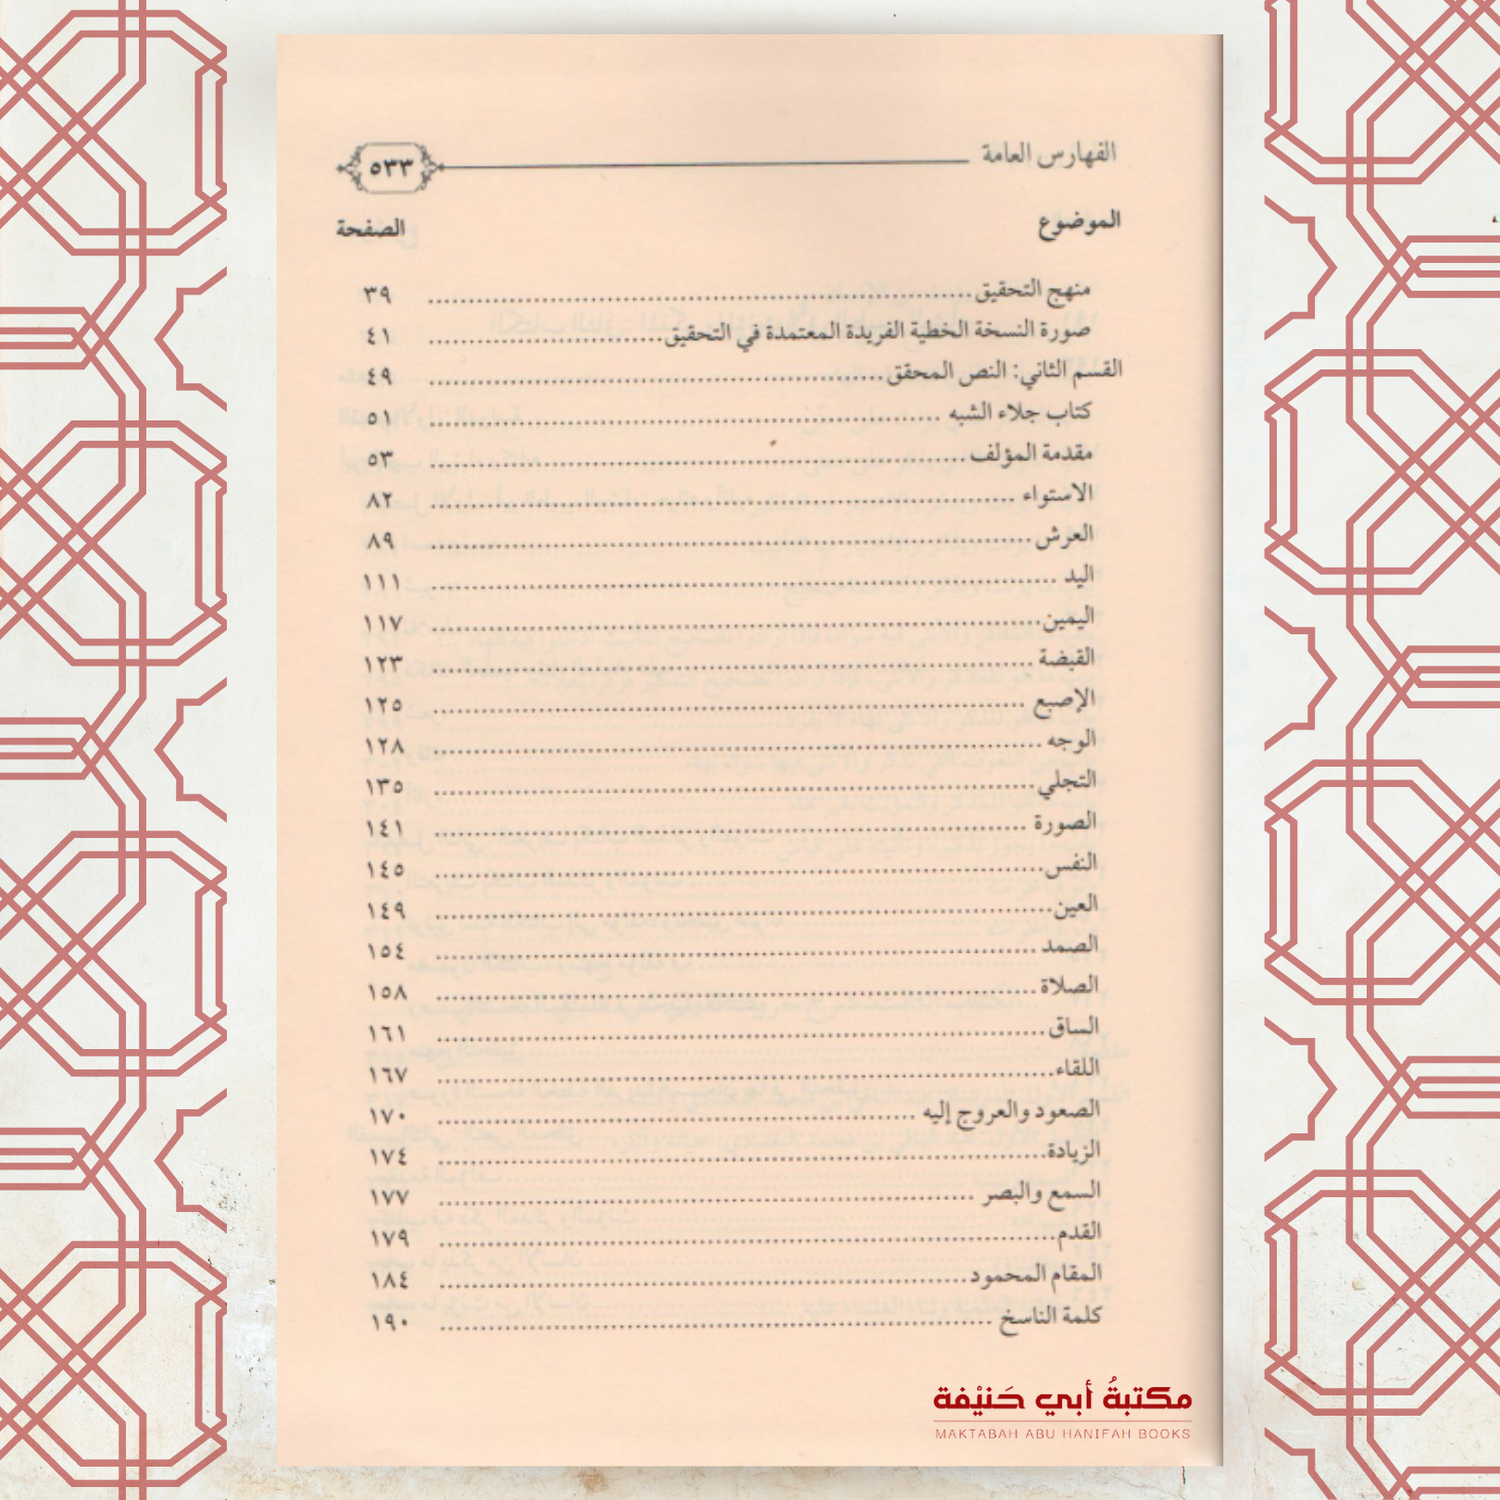 الفهارس العامة ٥٣٣
الموضوع الصفحة
منهج التحقيق ................ ٣٩
صورة النسخة الخطية الفريدة المعتمدة في التحقيق ................ ٤١
القسم الثاني: النص المحقق ................ ٤٩
كتاب جلاء الشبه ................ ٥١
مقدمة المؤلف ................ ٥٣
الاستواء ................ ٨٢
العرش ................ ٨٩
اليد ................ ١١١
اليمين ................ ١١٧
القبضة ................ ١٢٣
الإصبع ................ ١٢٥
الوجه ................ ١٢٨
التجلي ................ ١٣٥
الصورة ................ ١٤١
النفس ................ ١٤٥
العين ................ ١٤٩
الصمد ................ ١٥٤
الصلاة ................ ١٥٨
الساق ................ ١٦١
اللقاء ................ ١٦٧
الصعود والعروج إليه ................ ١٧٠
الزيادة ................ ١٧٤
السمع والبصر ................ ١٧٧
القدم ................ ١٧٩
المقام المحمود ................ ١٨٤
كلمة الناسخ ................ ١٩٠
مكتبةُ أبي حَنيْفة
MAKTABAH ABU HANIFAH BOOKS